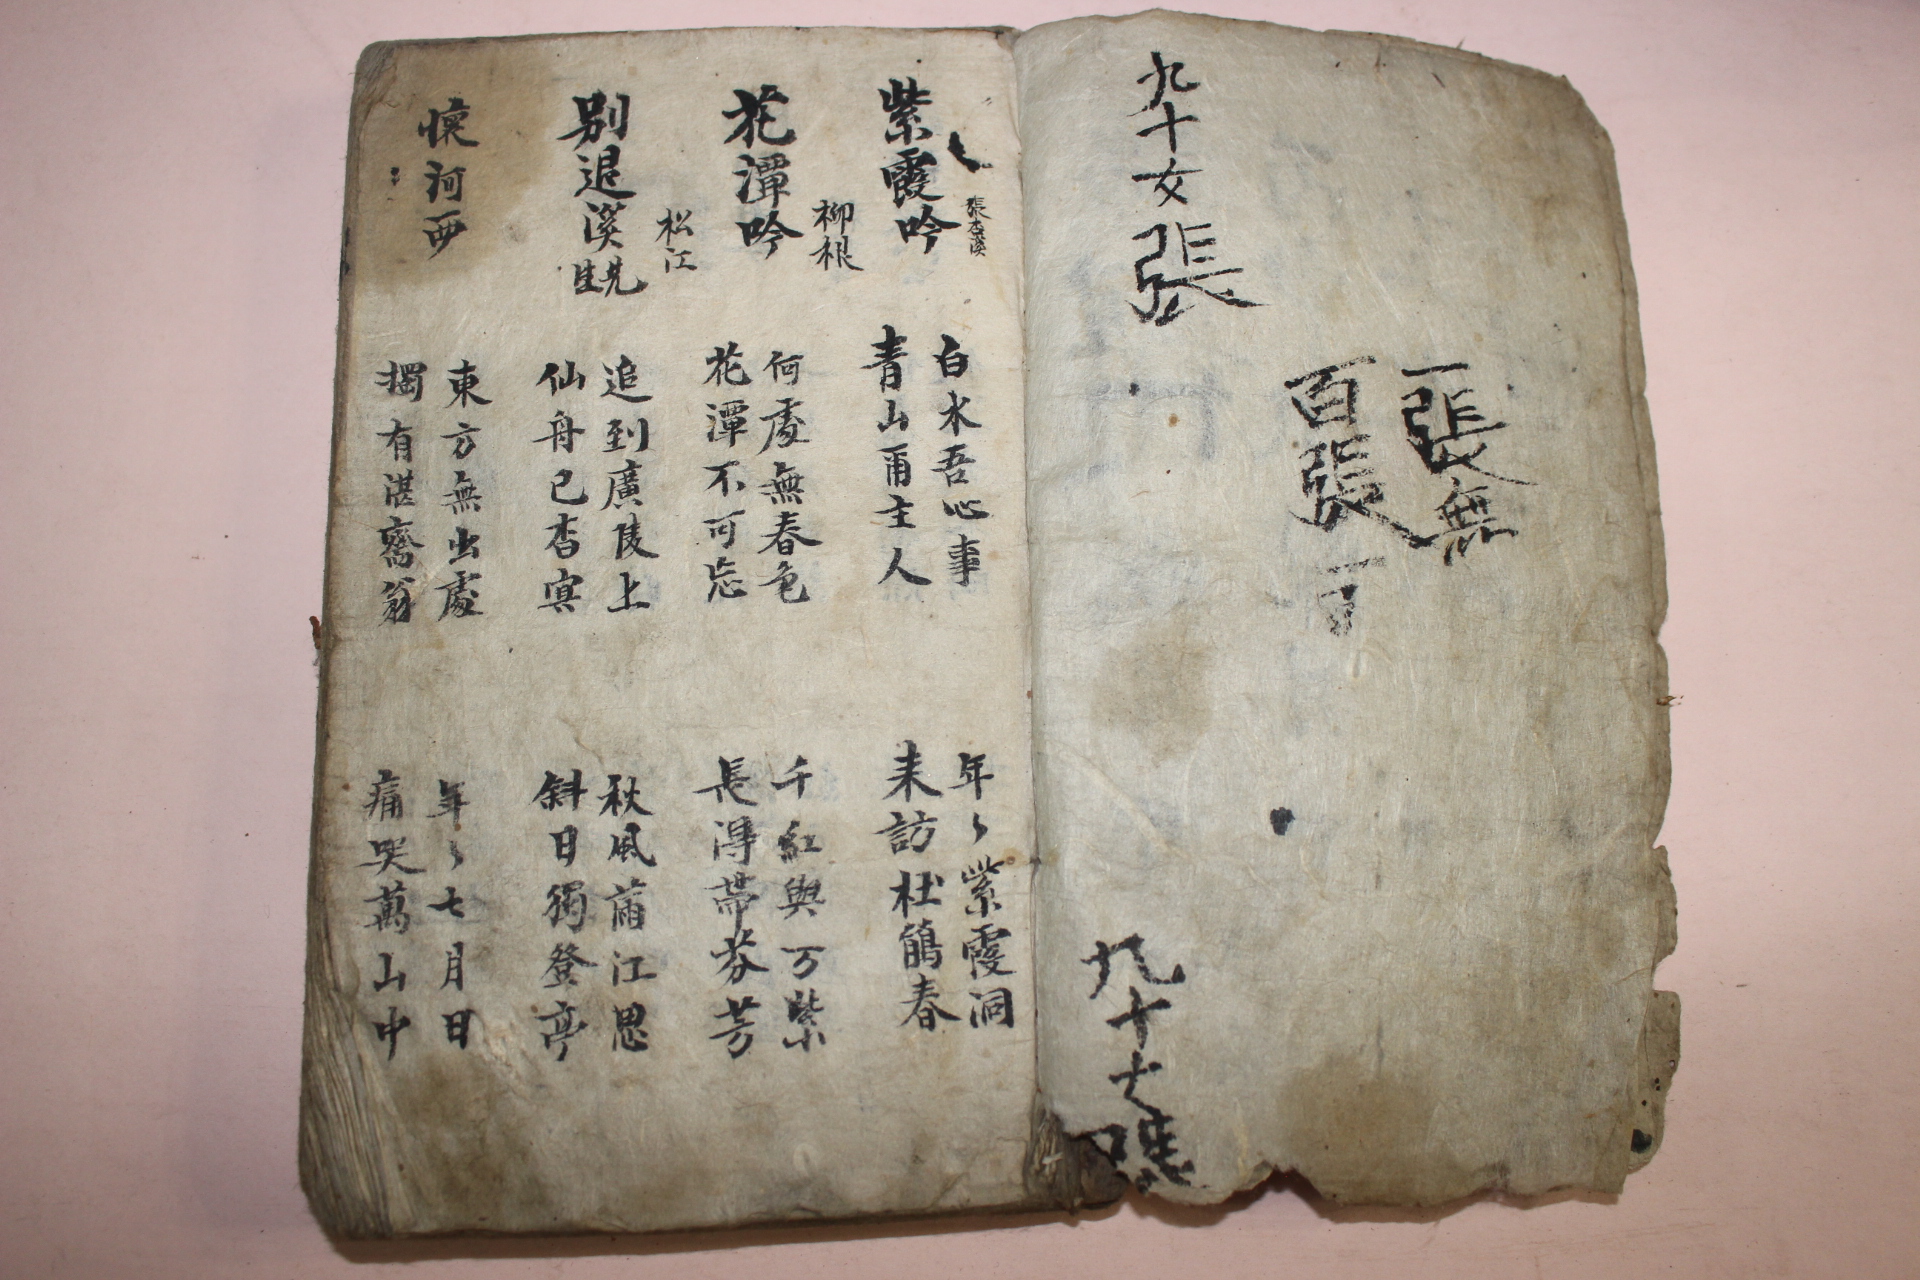 一張無
百張
九十女張
九十七
紫霞吟
張杏溪
白水吾心事
青山爾主人
年々紫霞洞
来訪杜鵑春
花潭吟
柳根
何處無春色
花潭不可忘
千紅與万紫
長得帶芬芳
別退溪先生
松江
追到廣陵上
仙舟已杳冥
秋風滿江思
斜日獨登亭
懷河西
東方無出處
獨有湛齋翁
年々七月日
痛哭萬山中